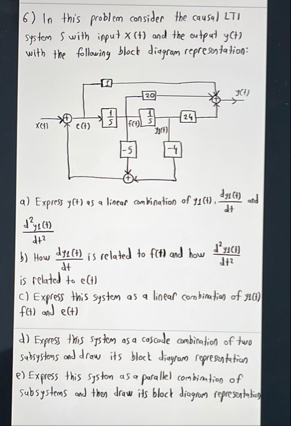 6) In this problem consider the causal LTI
system S with input x(t) and the output y(t)
with the following block diagram representation:
1
20
y(t)
x(t) e(t) 1/s f(t) 1/s 24
y1(t)
-5 -4
a) Express y(t) as a linear combination of y1(t), dy1(t)/dt and
d²y1(t)/dt²
b) How dy1(t)/dt is related to f(t) and how d²y1(t)/dt²
is related to e(t)
c) Express this system as a linear combination of y1(t)
f(t) and e(t)
d) Express this system as a cascade combination of two
subsystems and draw its block diagram representation
e) Express this system as a parallel combination of
subsystems and then draw its block diagram representation